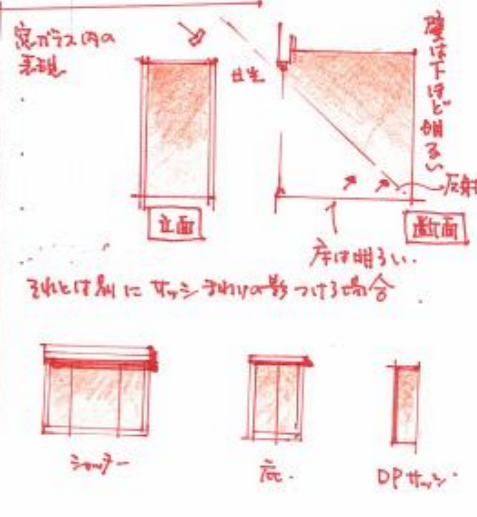 窓ガラス内の
表現
日光
壁は下ほど明るい
反射
立面
断面
床は明るい.
それとは別に サッシまわりの影つける場合
シャッター
庇.
DPサッシ.